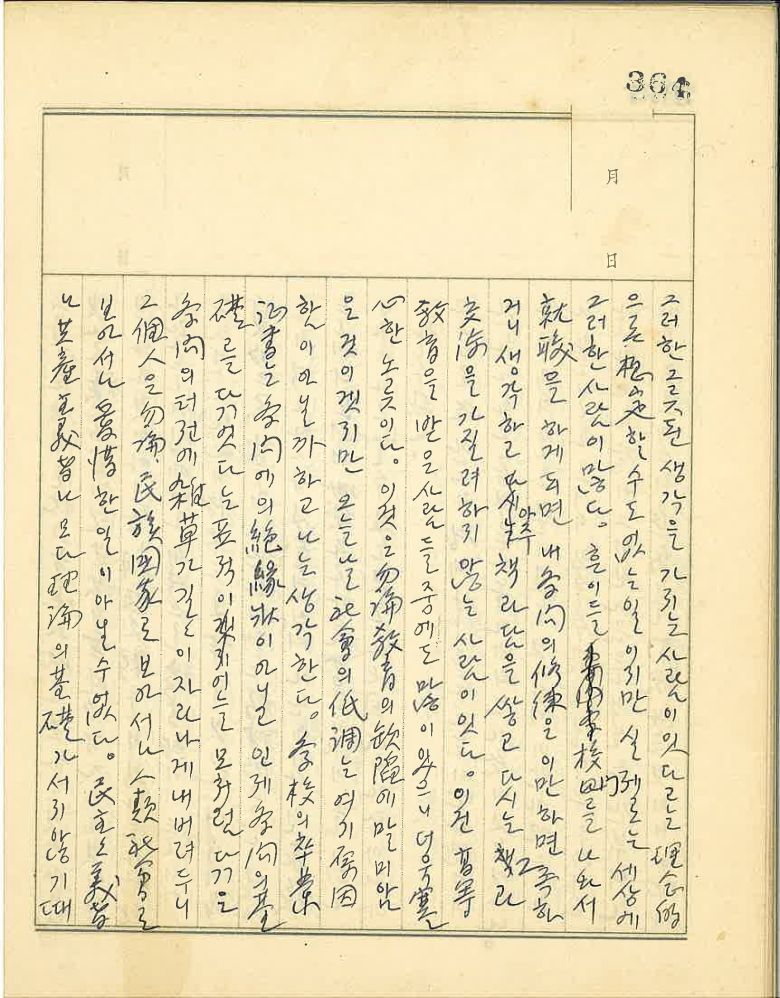 364
月
日
그러한 그릇된 생각을 가지는 사람이 잇다고는 理念的
으론 想定할 수도 없는 일이지만 실제로는 세상에
그러한 사람이 많다. 흔이들 校門를 나와서
就職을 하게 되면 내 學问의 修練은 이만하면 족하
거니 생각하고 아주 책과 담을 쌓고 다시는 그 책과
交涉을 가질려 하지 않는 사람이 잇다. 이건 高等
敎育을 받은 사람들 중에도 많이 있으니 더욱 寒
心한 노릇이다. 이것은 勿論 敎育의 欽陷에 말미암
은 것이겟지만 오늘날 社會의 低調는 여기 原因
한이 아닐까 하고 나는 생각한다. 學校의 卒業
证書는 學问에의 絶緣狀이 아닐 인제 學问의 基
礎를 다것다는 표적이겟거늘 모처럼 다긴
學问의 터전에 雜草가 길길이 자라나게 내버려두니
그 個人은 勿論, 民族國家로 보아서나 人類社會로
보아서나 哀惜한 일이 아닐 수 없다. 民主主義者
나 共産主義者나 모다 理論의 基礎가 서지 않기 때